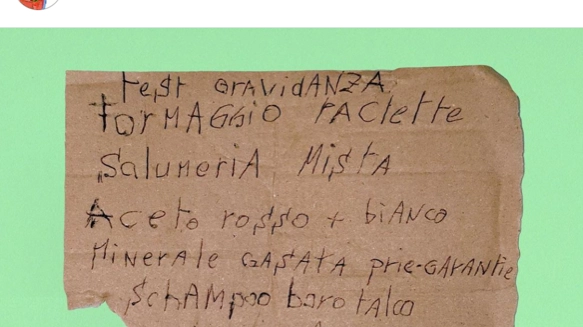 test GRAVidANZA
forMAGGiO RAClette
SalumeriA MistA
Aceto rosso + biANco
MiNerAle GASATA prie-GArANtie
SchAMpoo boro tAlco